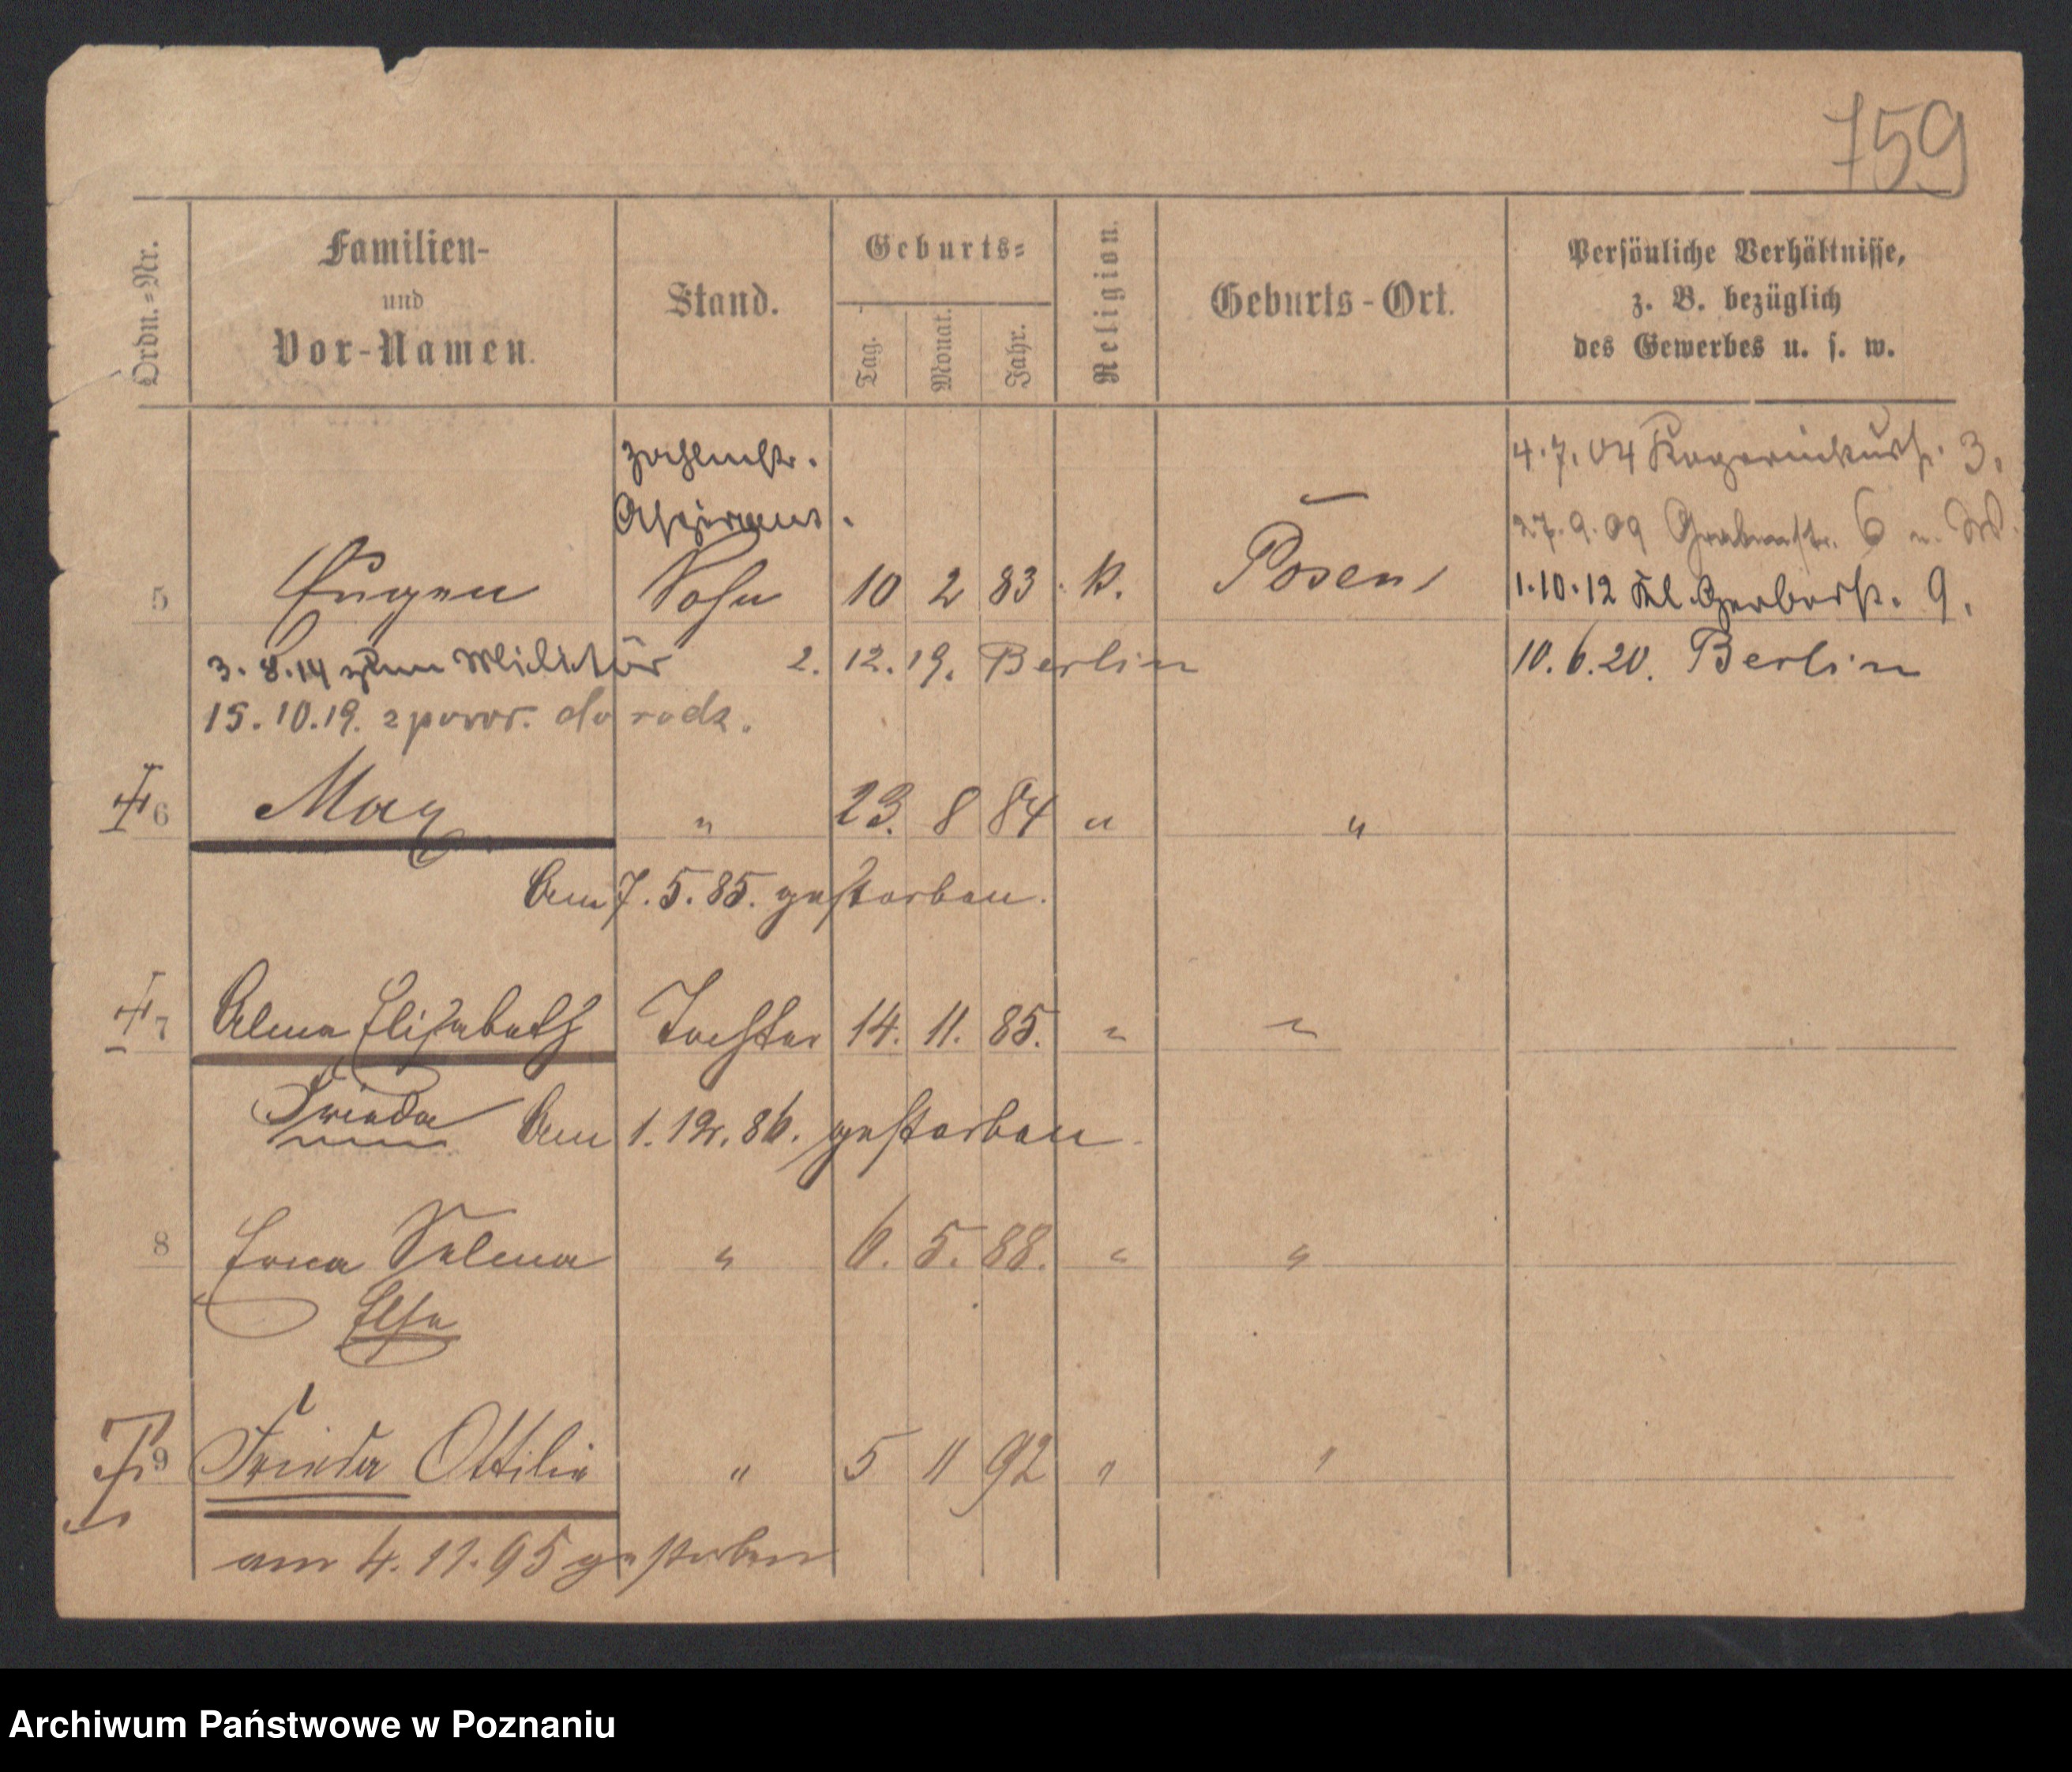 759
Ordn.-Nr.
Familien-
und
Vor-Namen.
Stand.
Geburts-
Tag.
Monat.
Jahr.
Religion.
Geburts-Ort.
Persönliche Verhältnisse,
z. B. bezüglich
des Gewerbes u. s. w.
Zahlmstr.
Aspirant.
4.7.04 3.
27.9.09 Grabenstr. 6
5 Eugen Sohn 10 2 83 k. Posen 1.10.12 Kl. Gerberstr. 9.
3.8.14 zum Militär 2.12.19. Berlin 10.6.20. Berlin
15.10.19. z powr. do rodz.
6 Max " 23. 8 84 " "
Am 7.5.85. gestorben.
7 Alma Elisabeth Tochter 14. 11. 85. " "
Frieda Am 1.12.86. gestorben.
8 Erna Selma " 6. 5. 88. " "
Else
9 Frieda Ottilie " 5 11 92 " "
am 4.11.95 gestorben
Archiwum Państwowe w Poznaniu